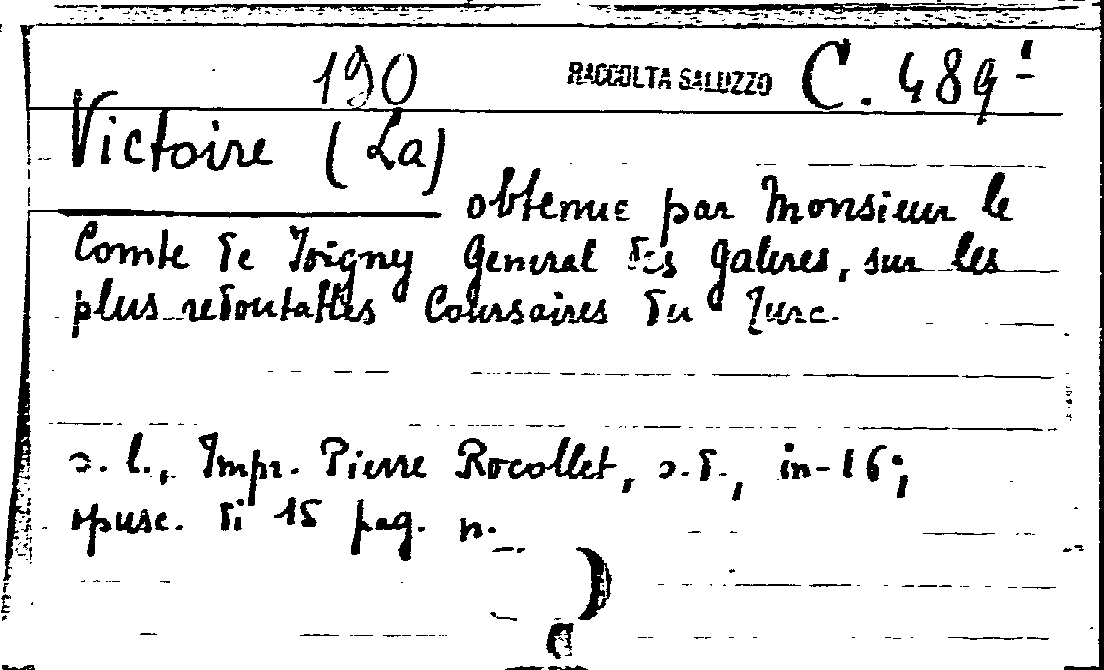 190 RACCOLTA SALUZZO C. 489¹
Victoire (La)
obtenue par Monsieur le
Comte de Joigny General des galeres, sur les
plus redoutables Coursaires du Turc.
s. l., Impr. Pierre Rocollet, s.d., in-16;
opusc. di 15 pag. n.